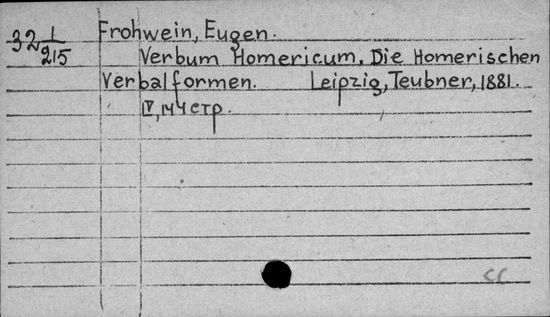 32 1/215
Frohwein, Eugen.
Verbum Homericum. Die Homerischen
Verbalformen. Leipzig, Teubner, 1881.
IV, 144 стр.